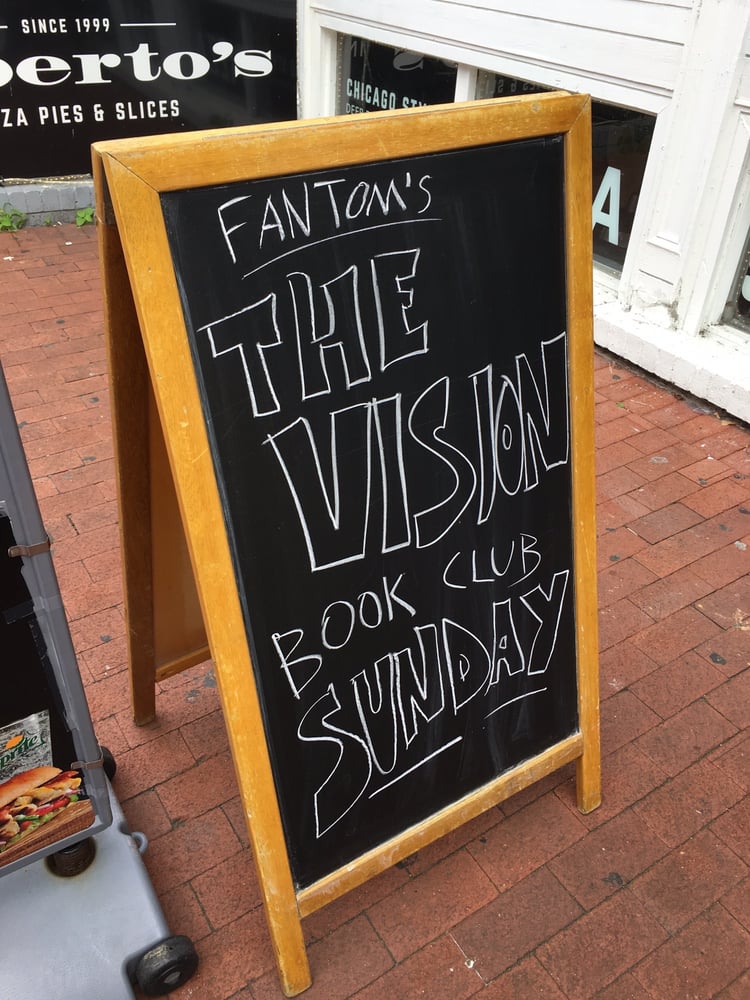 SINCE 1999
berto's
ZA PIES & SLICES
CHICAGO STY
A
FANTOM'S
THE
VISION
BOOK CLUB
SUNDAY